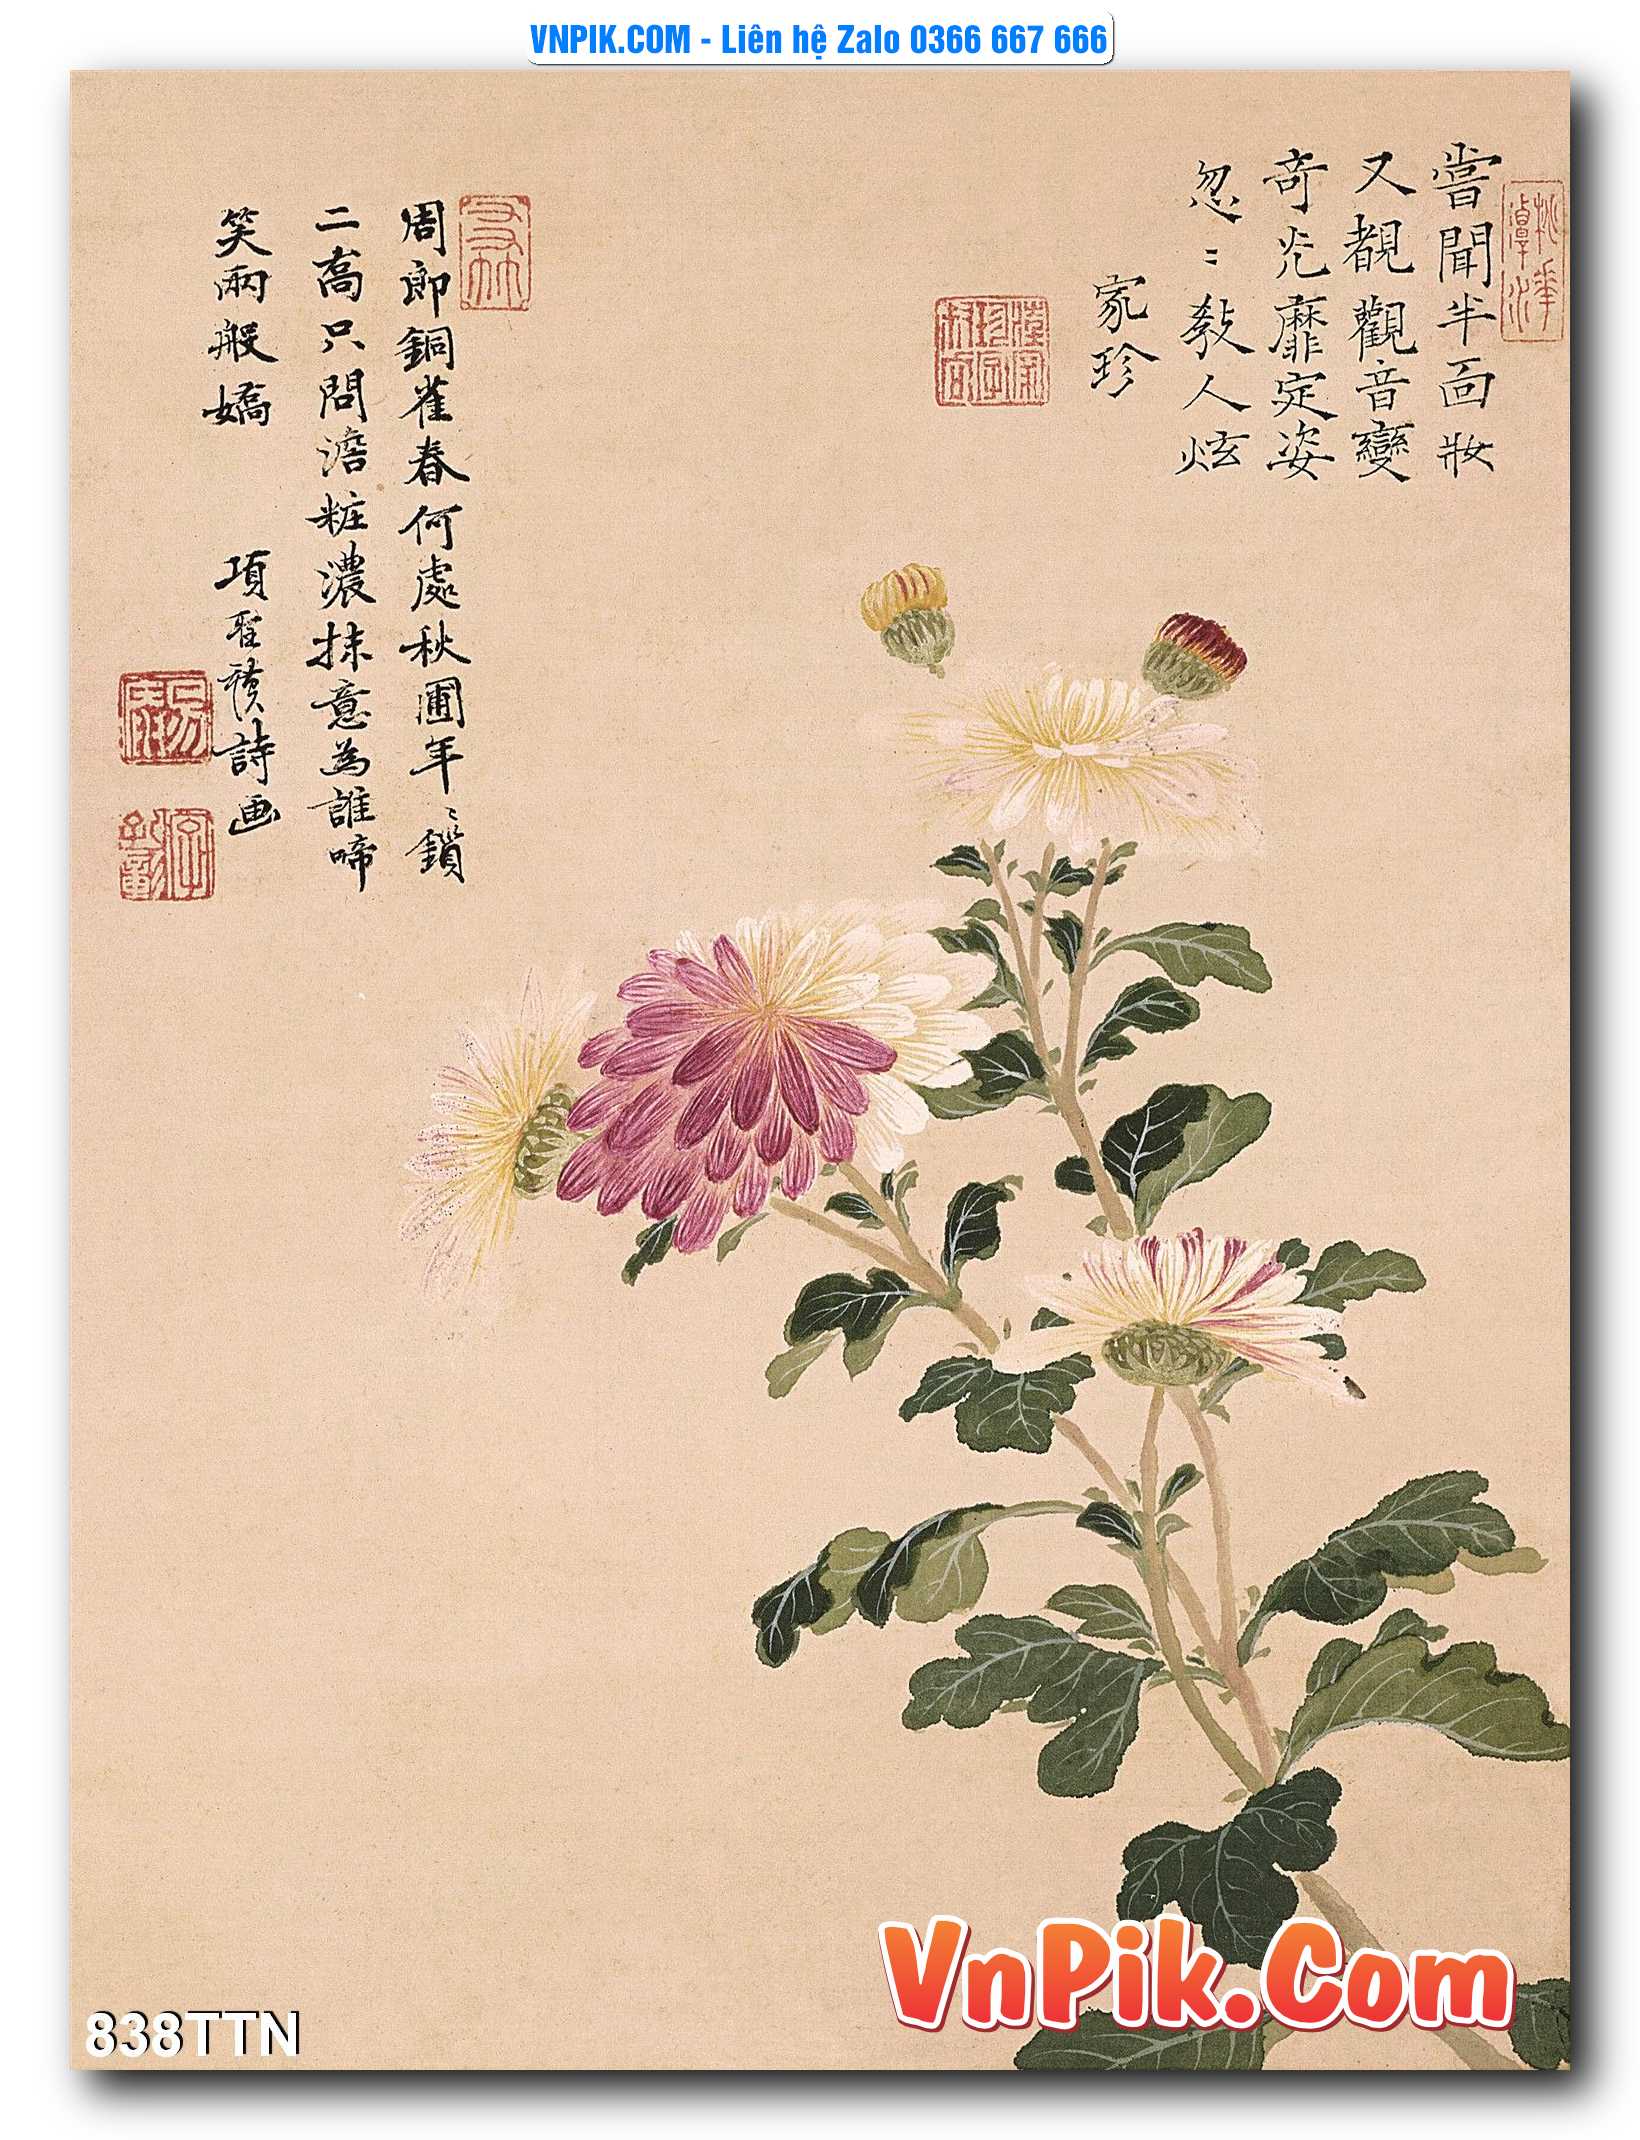 VNPIK.COM - Liên hệ Zalo 0366 667 666
嘗聞半面妝
又覩觀音變
奇光靡定姿
忽〻教人炫
家珍
周郎銅雀春何處秋圃年〻鎖
二喬只問澹粧濃抹意為誰啼
笑兩般嬌
項聖謨詩画
VnPik.Com
838TTN